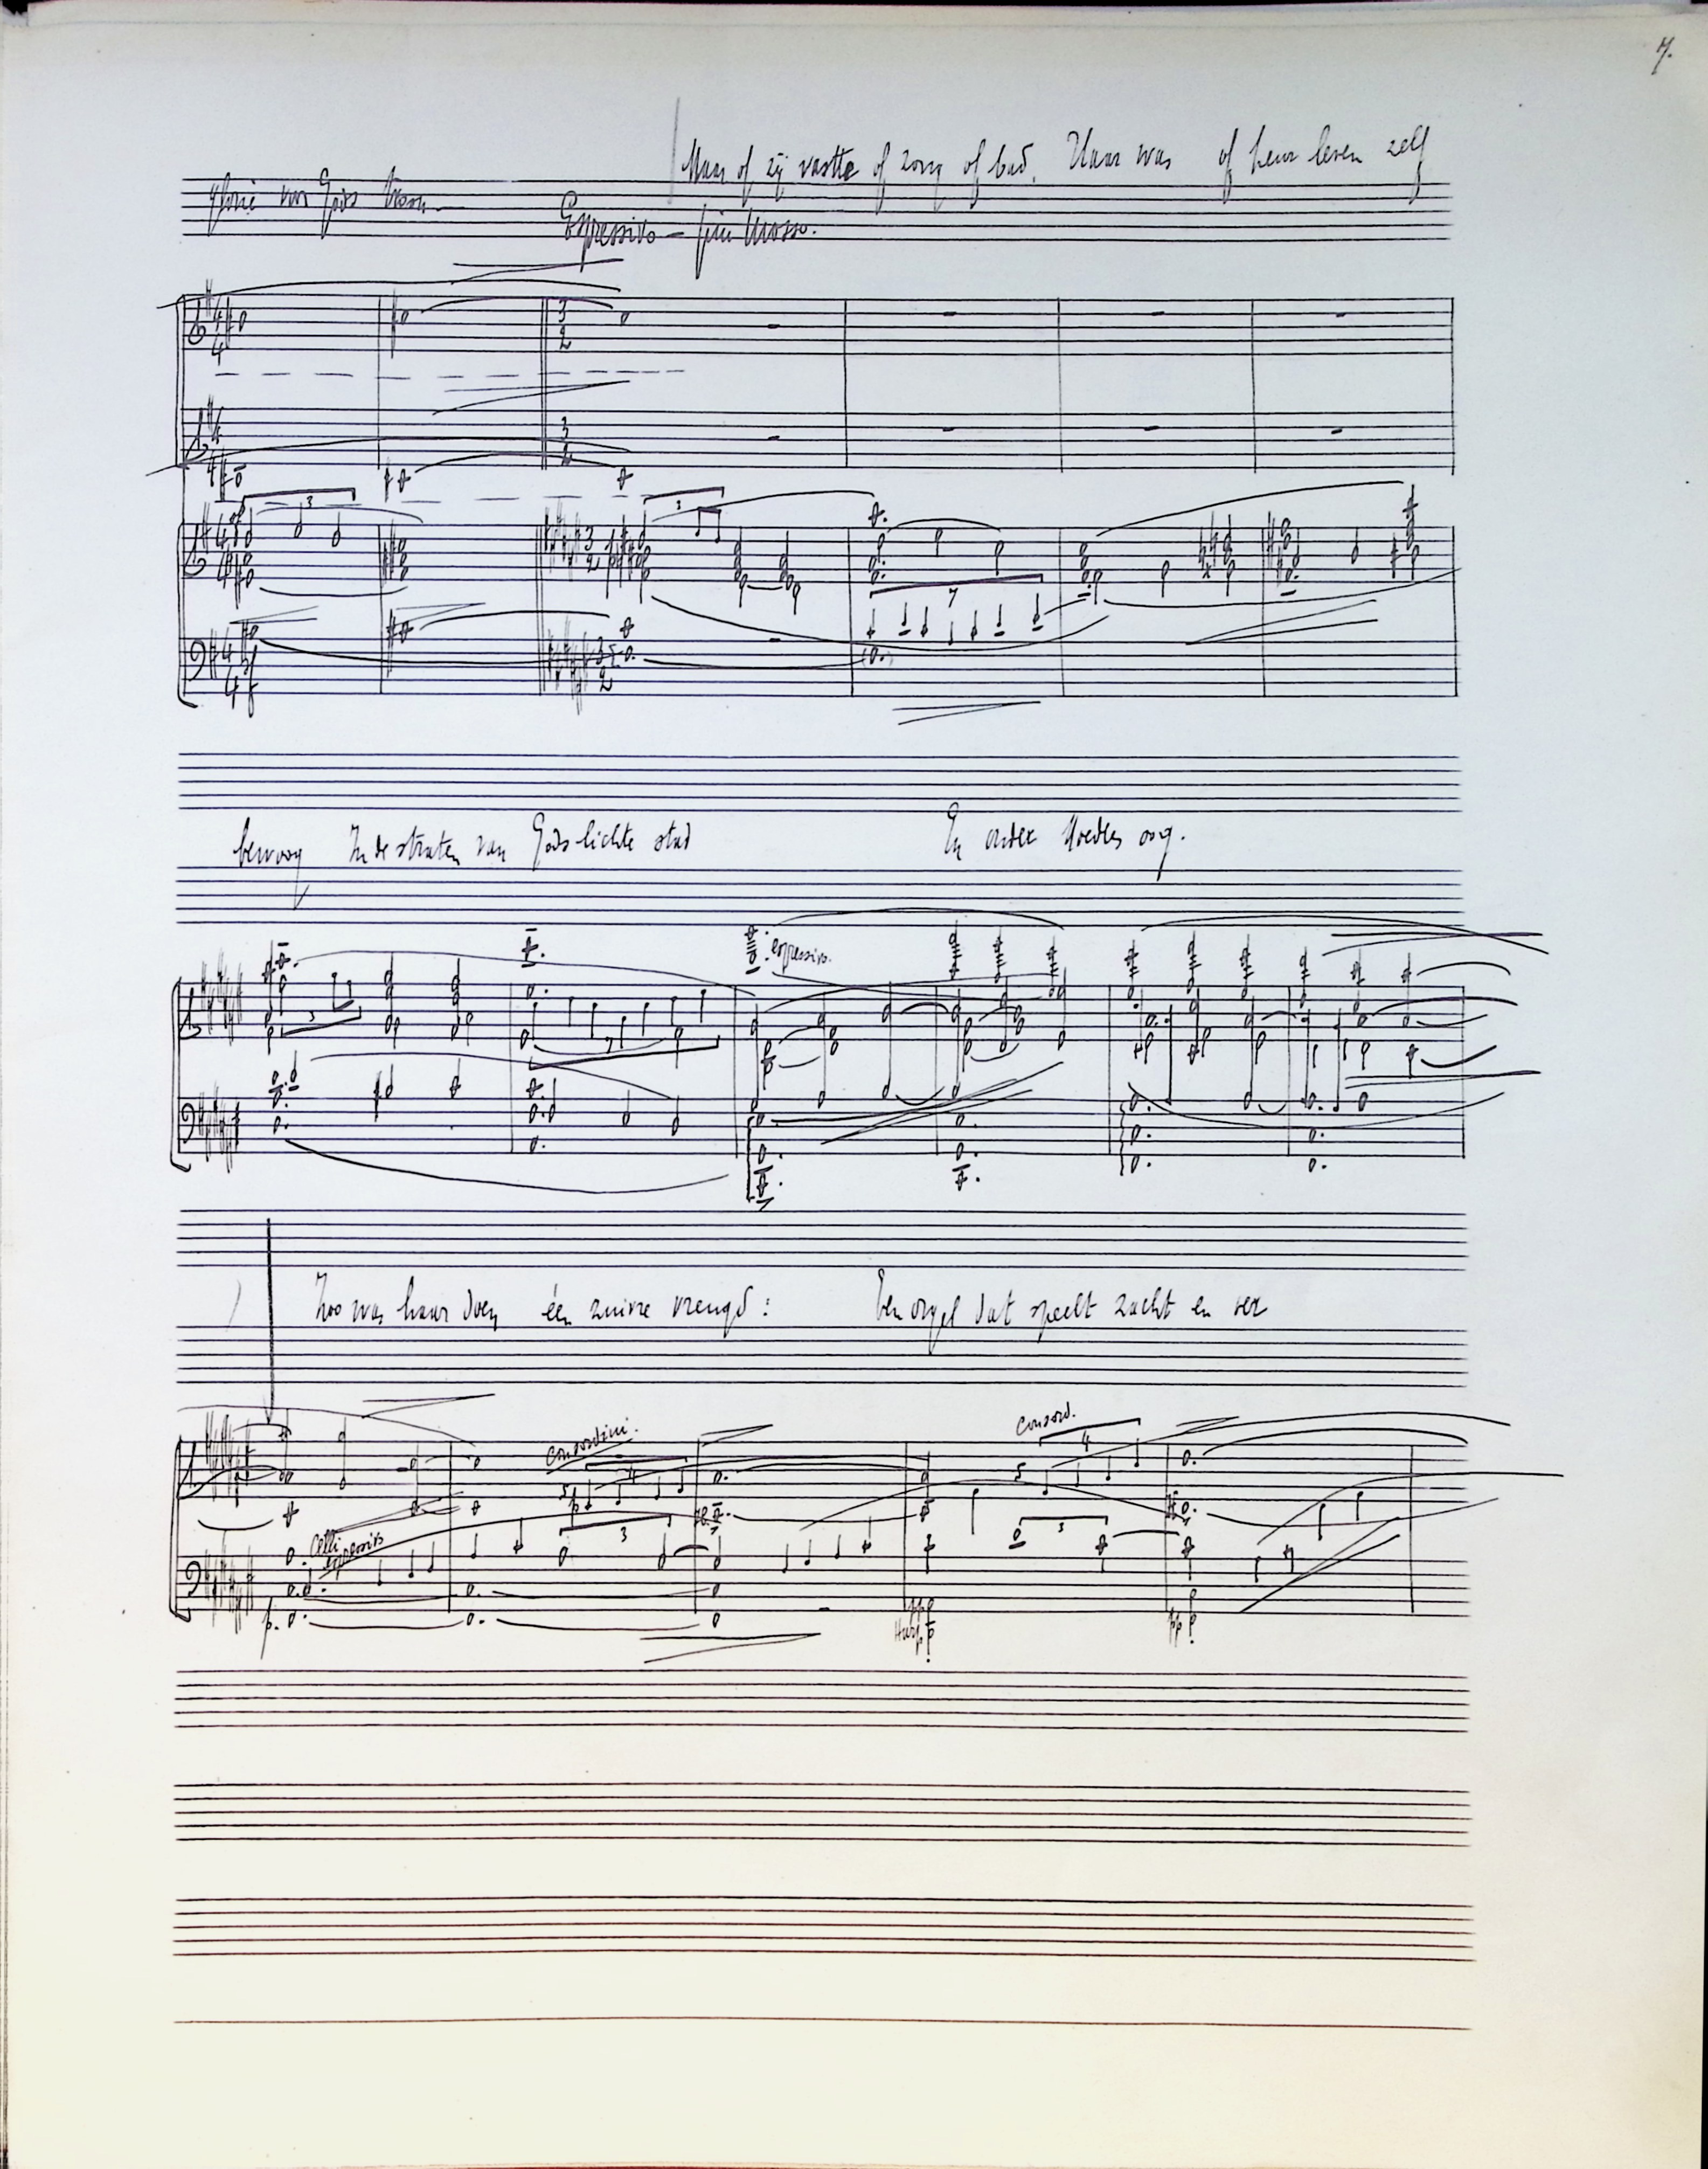 7.
Maar of zij vastte of zong of bad, 't Was of heur leven zelf
glorie voor Gods troon
Espressivo — più mosso.
4 4
3 2
3 2
3
3
4 4
3 2
7
4 4
3 2
bewoog In de straten van Gods lichte stad En onder Moeders oog.
espressivo.
3
7
Zoo was haar doen één zuivre vreugd: Een orgel dat speelt zacht en ver
con sordini.
con sord.
4
4
p
Celli
espressivo
3
3
p.
pp
Harp
pp